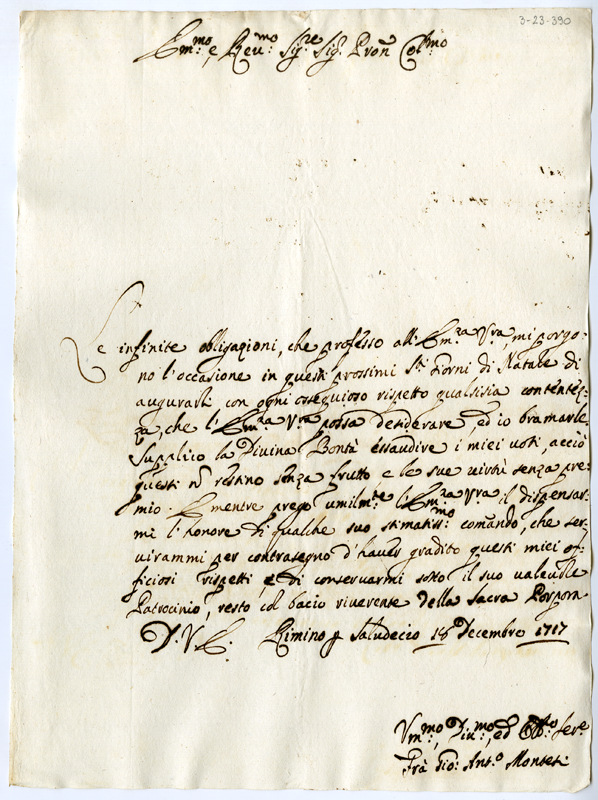 3-23-390
Em:mo e Reu:mo Sig:re Sig:r Pron Col:mo
Le infinite obligazioni, che professo all' Em:za V:ra mi porgo-
no l'occasione in questi prossimi S:ti Giorni di Natale di
augurarli con ogni ossequioso rispetto qualsisia contentez-
za, che l' Em:za V:ra possa desiderare, ed io bramarle.
Supplico la Divina Bontà essaudire i miei voti, acciò
questi nō restino senza frutto e le sue virtù senza pre-
mio. E mentre prego umilm:te l' Em:za V:ra il dispensar-
mi l'honore di qualche suo stimatiss:mo comando, che ser-
uirammi per contrasegno d'hauer gradito questi miei of-
ficiosi rispetti, e di conseruarmi sotto il suo valeuole
Patrocinio, resto col bacio riuerente della Sacra Porpora
D. V. E. Rimino p Saludecio 18 Decembre 1717
Vm:mo, Diu:mo, ed Obb:mo Ser:e
Frà Gio: Ant:o